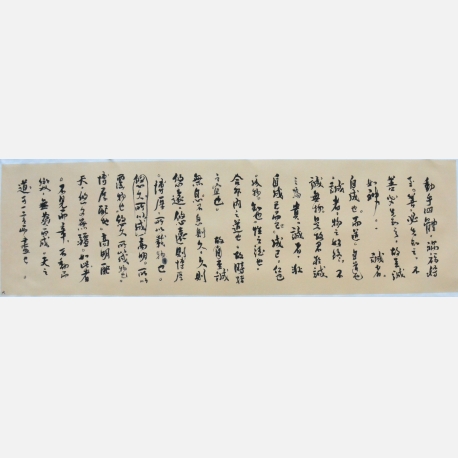 動乎四體禍福將
至善必先知之不
善必先知之故至誠
如神 誠者
自成也而道自道也
誠者物之終始不
誠無物是故君子誠
之為貴誠者非
自成己而已成己仁也
成物知也性之德也
合外內之道也故時措
之宜也 故至誠
無息不息則久久則
悠遠悠遠則博厚
博厚所以載物也
悠久所以成高明所以
覆物也悠久所以成物也
博厚配地高明配
天悠久無疆如此者
不見而章不動而
變無為而成天之
道可一言而盡也